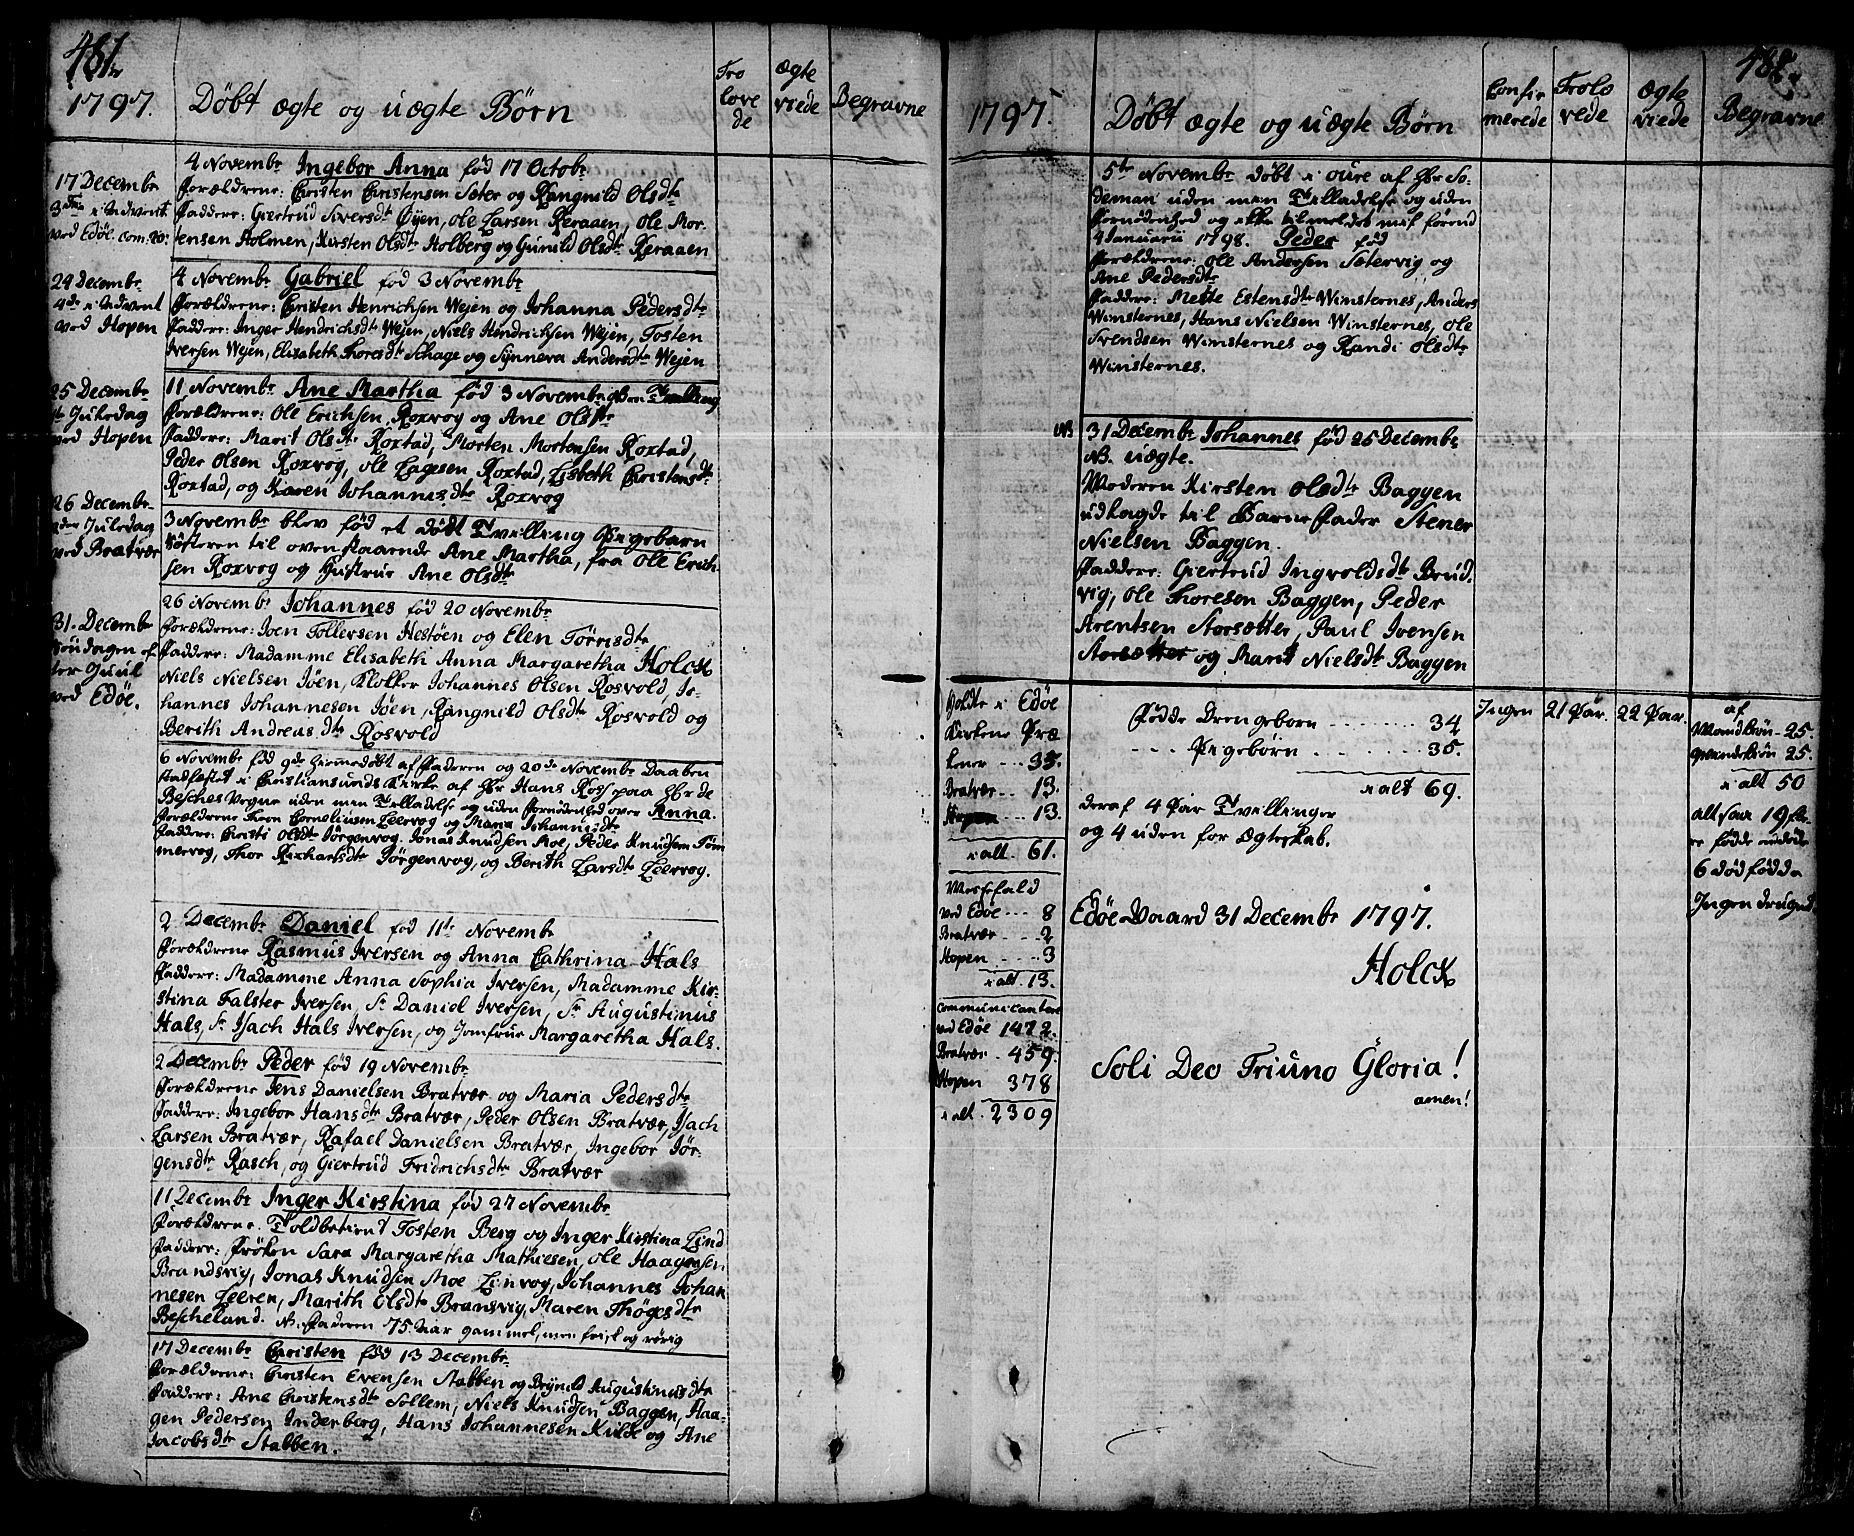 481.
1797.
Døbt ægte og uægte Børn
Tro
love
de
Ægte
viede
Begravne
17 Decembr
3die i Advent
ved Edöe. com. 20.
24 Decembr
4de i Advent
ved Hopen
25 Decembr
Juledag
ved Hopen
26 Decembr
Juledag
ved Bratvær
31. Decembr
Söndagen ef
ter Juul
ved Edöe.
4 Novembr Ingebor Anna fød 17 Octobr
Forældrene: Christen Christensen Sæter og Rangnild Olsdtr
Faddere: Giertrud Siversdtr Öyen, Ole Larsen Reraaen, Ole Mor
tensen Holmen, Kirsten Olsdtr Holberg og Gunild Olsdtr Reraaen
4 Novembr Gabriel fød 3 Novembr
Forældrene: Christen Henrichsen Wejen og Johanna Pedersdtr
Faddere: Inger Hendrichsdtr Wejen, Niels Hendrichsen Wejen, Tosten
Iversen Wejen, Elisabeth Thoresdtr Schage og Synneva Andersdtr Wejen
11 Novembr Ane Martha fød 3 Novembr Tvilling
Forældrene: Ole Erichsen Roxvog og Ane Olsdtr
Faddere: Marit Olsdtr Roxtad, Morten Mortensen Roxtad,
Peder Olsen Roxvog, Ole Lagesen Roxtad, Lisbeth Christensdtr
Roxtad, og Karen Johannisdtr Roxvog
3 Novembr blev fød et dødt Tvilling Pigebarn
Søsteren til ovenstaaende Ane Martha, fra Ole Erich
sen Roxvog og Hustrue Ane Olsdtr
26 Novembr Johannes fød 20 Novembr
Forældrene: Joen Tollersen Hestöen og Elen Törrisdtr
Faddere: Madamme Elisabeth Anna Margaretha Holck
Niels Nielsen Jöen, Klokker Johannes Olsen Rosvold, Jo-
hannes Johannesen Jöen, Rangnild Olsdtr Rosvold og
Berith Andreasdtr Rosvold
6 Novembr fød 9de hiemmedøbt af Faderen og 20de Novembr Daaben
stadfæstet i Christiansunds Kirke af Hr Hans Ross paa Hr de
Besches Vegne uden min Tilladelse og uden Fornødenhed over Anna.
Forældrene Iver Corneliusen Leervog og Maria Johannisdtr
Faddere: Christi Olsdtr Jørgenvog, Jonas Knudsen Moe, Peder Knudsen Tøm
mervog, Thor Richartsdtr Jørgenvog, og Berith Larsdtr Leervog.
2 Decembr Daniel fød 11te Novembr
Forældrene Rasmus Iversen og Anna Cathrina Hals
Faddere: Madamme Anna Sophia Iversen, Madamme Kir-
stina Falster Iversen, Sr Daniel Iversen, Sr Augustinus
Hals, Sr Isach Hals Iversen, og Jomfrue Margaretha Hals.
2 Decembr Peder fød 19 Novembr
Forældrene Jens Danielsen Bratvær og Maria Pedersdtr
Faddere: Ingebor Hansdtr Bratvær, Peder Olsen Bratvær, Isach
Larsen Bratvær, Rafael Danielsen Bratvær, Ingebor Jör-
gensdtr Rasch, og Giertrud Fridrichsdtr Bratvær
11 Decembr Inger Kirstina fød 27 Novembr
Forældrene. Toldbetient Tosten Berg og Inger Kirstina Lind
Faddere: Frøken Sara Margaretha Mathiesen, Ole Haagensen
Brandsvig, Jonas Knudsen Moe Linvog, Johannes Johan
nesen Leeren, Marith Olsdtr Bransvig, Maren Thögesdtr
Bescheland. NB. Faderen 75 Aar gammel, men frisk og rörig
17 Decembr Christen fød 13 Decembr
Forældrene: Christen Evensen Stabben og Brynild Augustinusdtr
Faddere: Ane Christensdtr Sollem, Niels Knudsen Baggen, Haa-
gen Pedersen Inderberg, Hans Johannesen Kulde og Ane
Jacobsdtr Stabben.
1797.
Døbt ægte og uægte Børn
Confir
merede
Trolo
vede
Ægte
viede
482.
Begravne
5te Novembr døbt i Oure af Hr So-
deman uden min Tilladelse og uden
Fornødenhed og ikke tilmeldet mig førend
4 Januarii 1798. Peder fød
Forældrene: Ole Andersen Sætervig og
Ane Pedersdtr
Faddere: Mette Estensdtr Winsternes, Anders
Winsternes, Hans Nielsen Winsternes, Ole
Svendsen Winsternes og Randi Olsdtr
Winsternes.
NB
31 Decembr Johannes fød 25 Decembr
NB. uægte.
Moderen Kirsten Olsdtr Baggen
udlagde til Barnefader Stener
Nielsen Baggen.
Faddere: Giertrud Ingvoldsdtr Brud
vig, Ole Thoresen Baggen, Peder
Arentsen Storsætter, Paul Ivensen
Storsætter og Marit Nielsdtr Baggen
Holdte i Edöe
Kirkene Præ
kener ... 35.
Bratvær .. 13.
Hopen ... 13
i alt. 61.
Messefald
ved Edöe ... 8
Bratvær ... 2
Hopen ... 3
i alt. 13.
Communicantere
ved Edöe 1472.
Bratvær. 459.
Hopen 378
i alt. 2309
Fødde Drengebørn ........ 34
--- Pigebørn ....... 35.
i alt 69.
deraf 4 Par Tvillinger
og 4 uden for Ægteskab.
Edöe Vaard 31 Decembr 1797.
Holck
Soli Deo Triuno Gloria!
amen!
Ingen
21 Par.
22 Par.
af
Mandkiön - 25
Qvindekiön 25.
i alt 50
altsaa 19 fle-
re fødde end døde
6 død fødde
Ingen druknd.